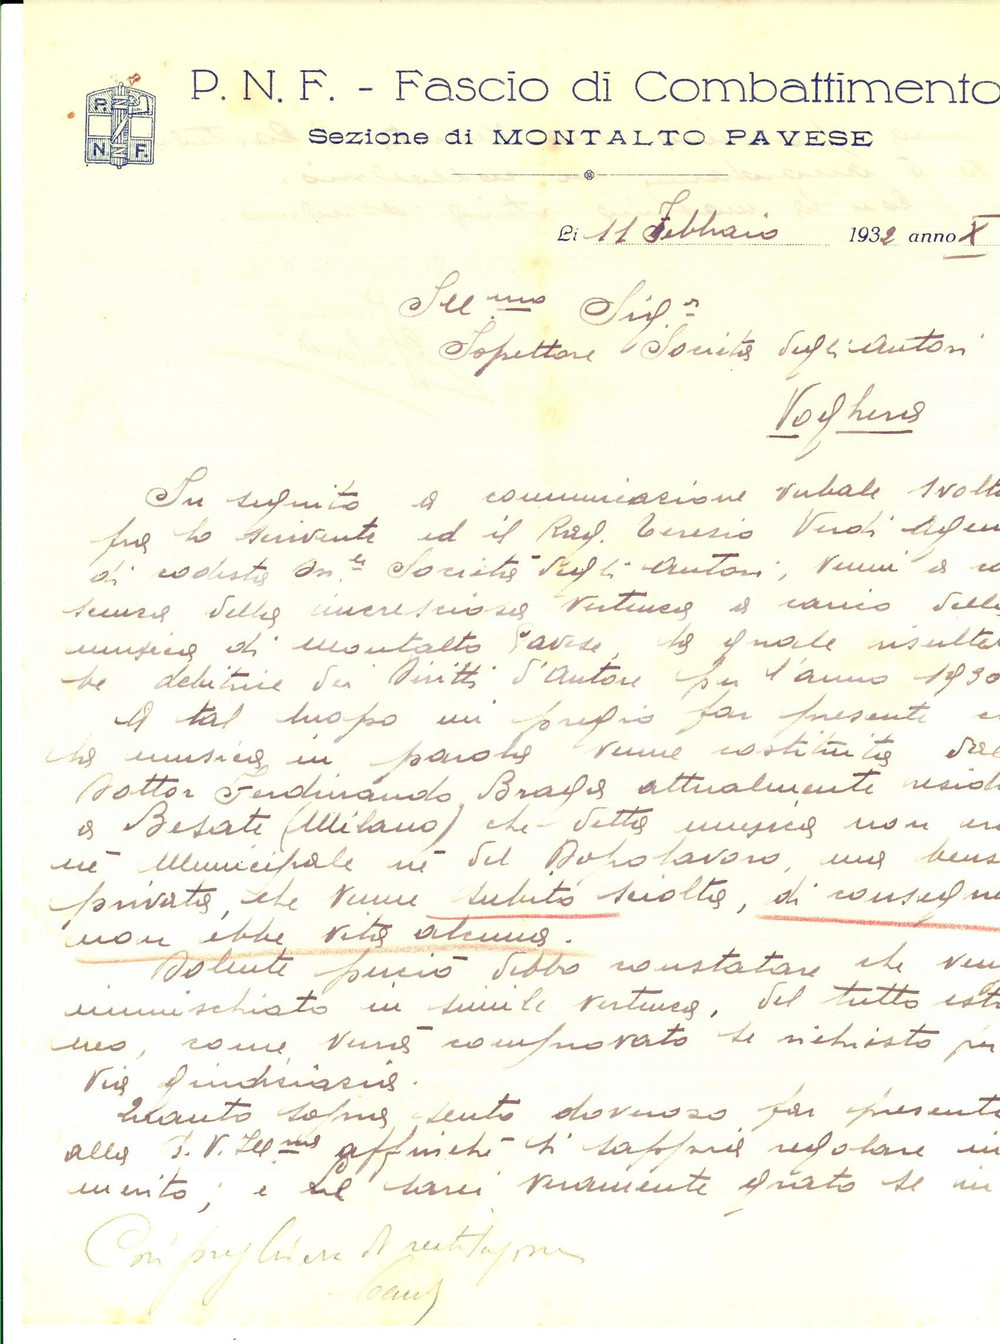 P. N. F. - Fascio di Combattimento
Sezione di MONTALTO PAVESE
P. N. F.
Li 11 Febbraio 1932 anno X
Ill.mo Sig.r
Ispettore Società degli Autori
Voghera
In seguito a comunicazione verbale svolta
fra lo scrivente ed il Rag. Teresio Verdi Agen
di codesta On.le Società degli Autori, venni a co
scenza della incresciosa vertenza a carico della
musica di Montalto Pavese, la quale risulter
be debitrice dei Diritti d'Autore per l'anno 1930
A tal scopo mi pregio far presente c
la musica in parola venne costituita dal
Dottor Ferdinando Braga attualmente resid
a Besate (Milano) che detta musica non er
nè Municipale nè del Dopolavoro, ma bens
privata, che venne subito sciolta, di consegu
non ebbe vita alcuna.
Dolente perciò debbo constatare che veng
immischiato in simile vertenza, del tutto estr
neo, come verrà comprovato se richiesto per
via giudiziaria.
Quanto sopra sento doveroso far presente
alla S. V. Ill.ma affinchè si sappia regolare in
merito; e Le sarei veramente grato se in
Con preghiera di restituzione